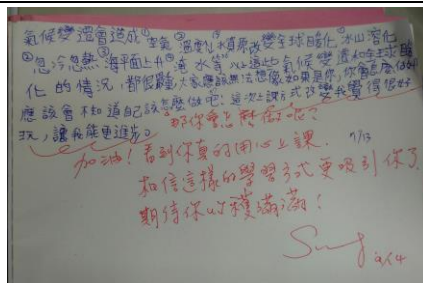 氣候變遷會造成①空氣②溫度③水質原改變全球暖化④冰山溶化
⑤忽冷忽熱⑥海平面上升⑦淹水等,以上這些氣候變遷和全球暖
化的情況,都很難大家應該無法想像如果是你,你會怎麼做呢
應該會不知道自己該怎麼做吧!這次上課方式改變我覺得很好
玩,讓我能更進步。
那你會怎麼做呢?
加油!看到你真的用心上課. 9/13
相信這樣的學習方式更吸引你了
期待你收穫滿滿!
9/14